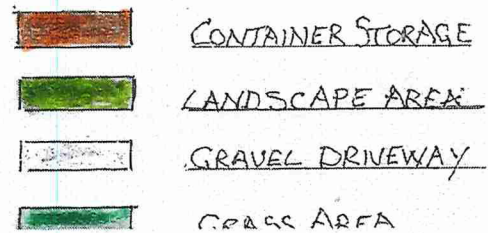 CONTAINER STORAGE
LANDSCAPE AREA
GRAVEL DRIVEWAY
GRASS AREA